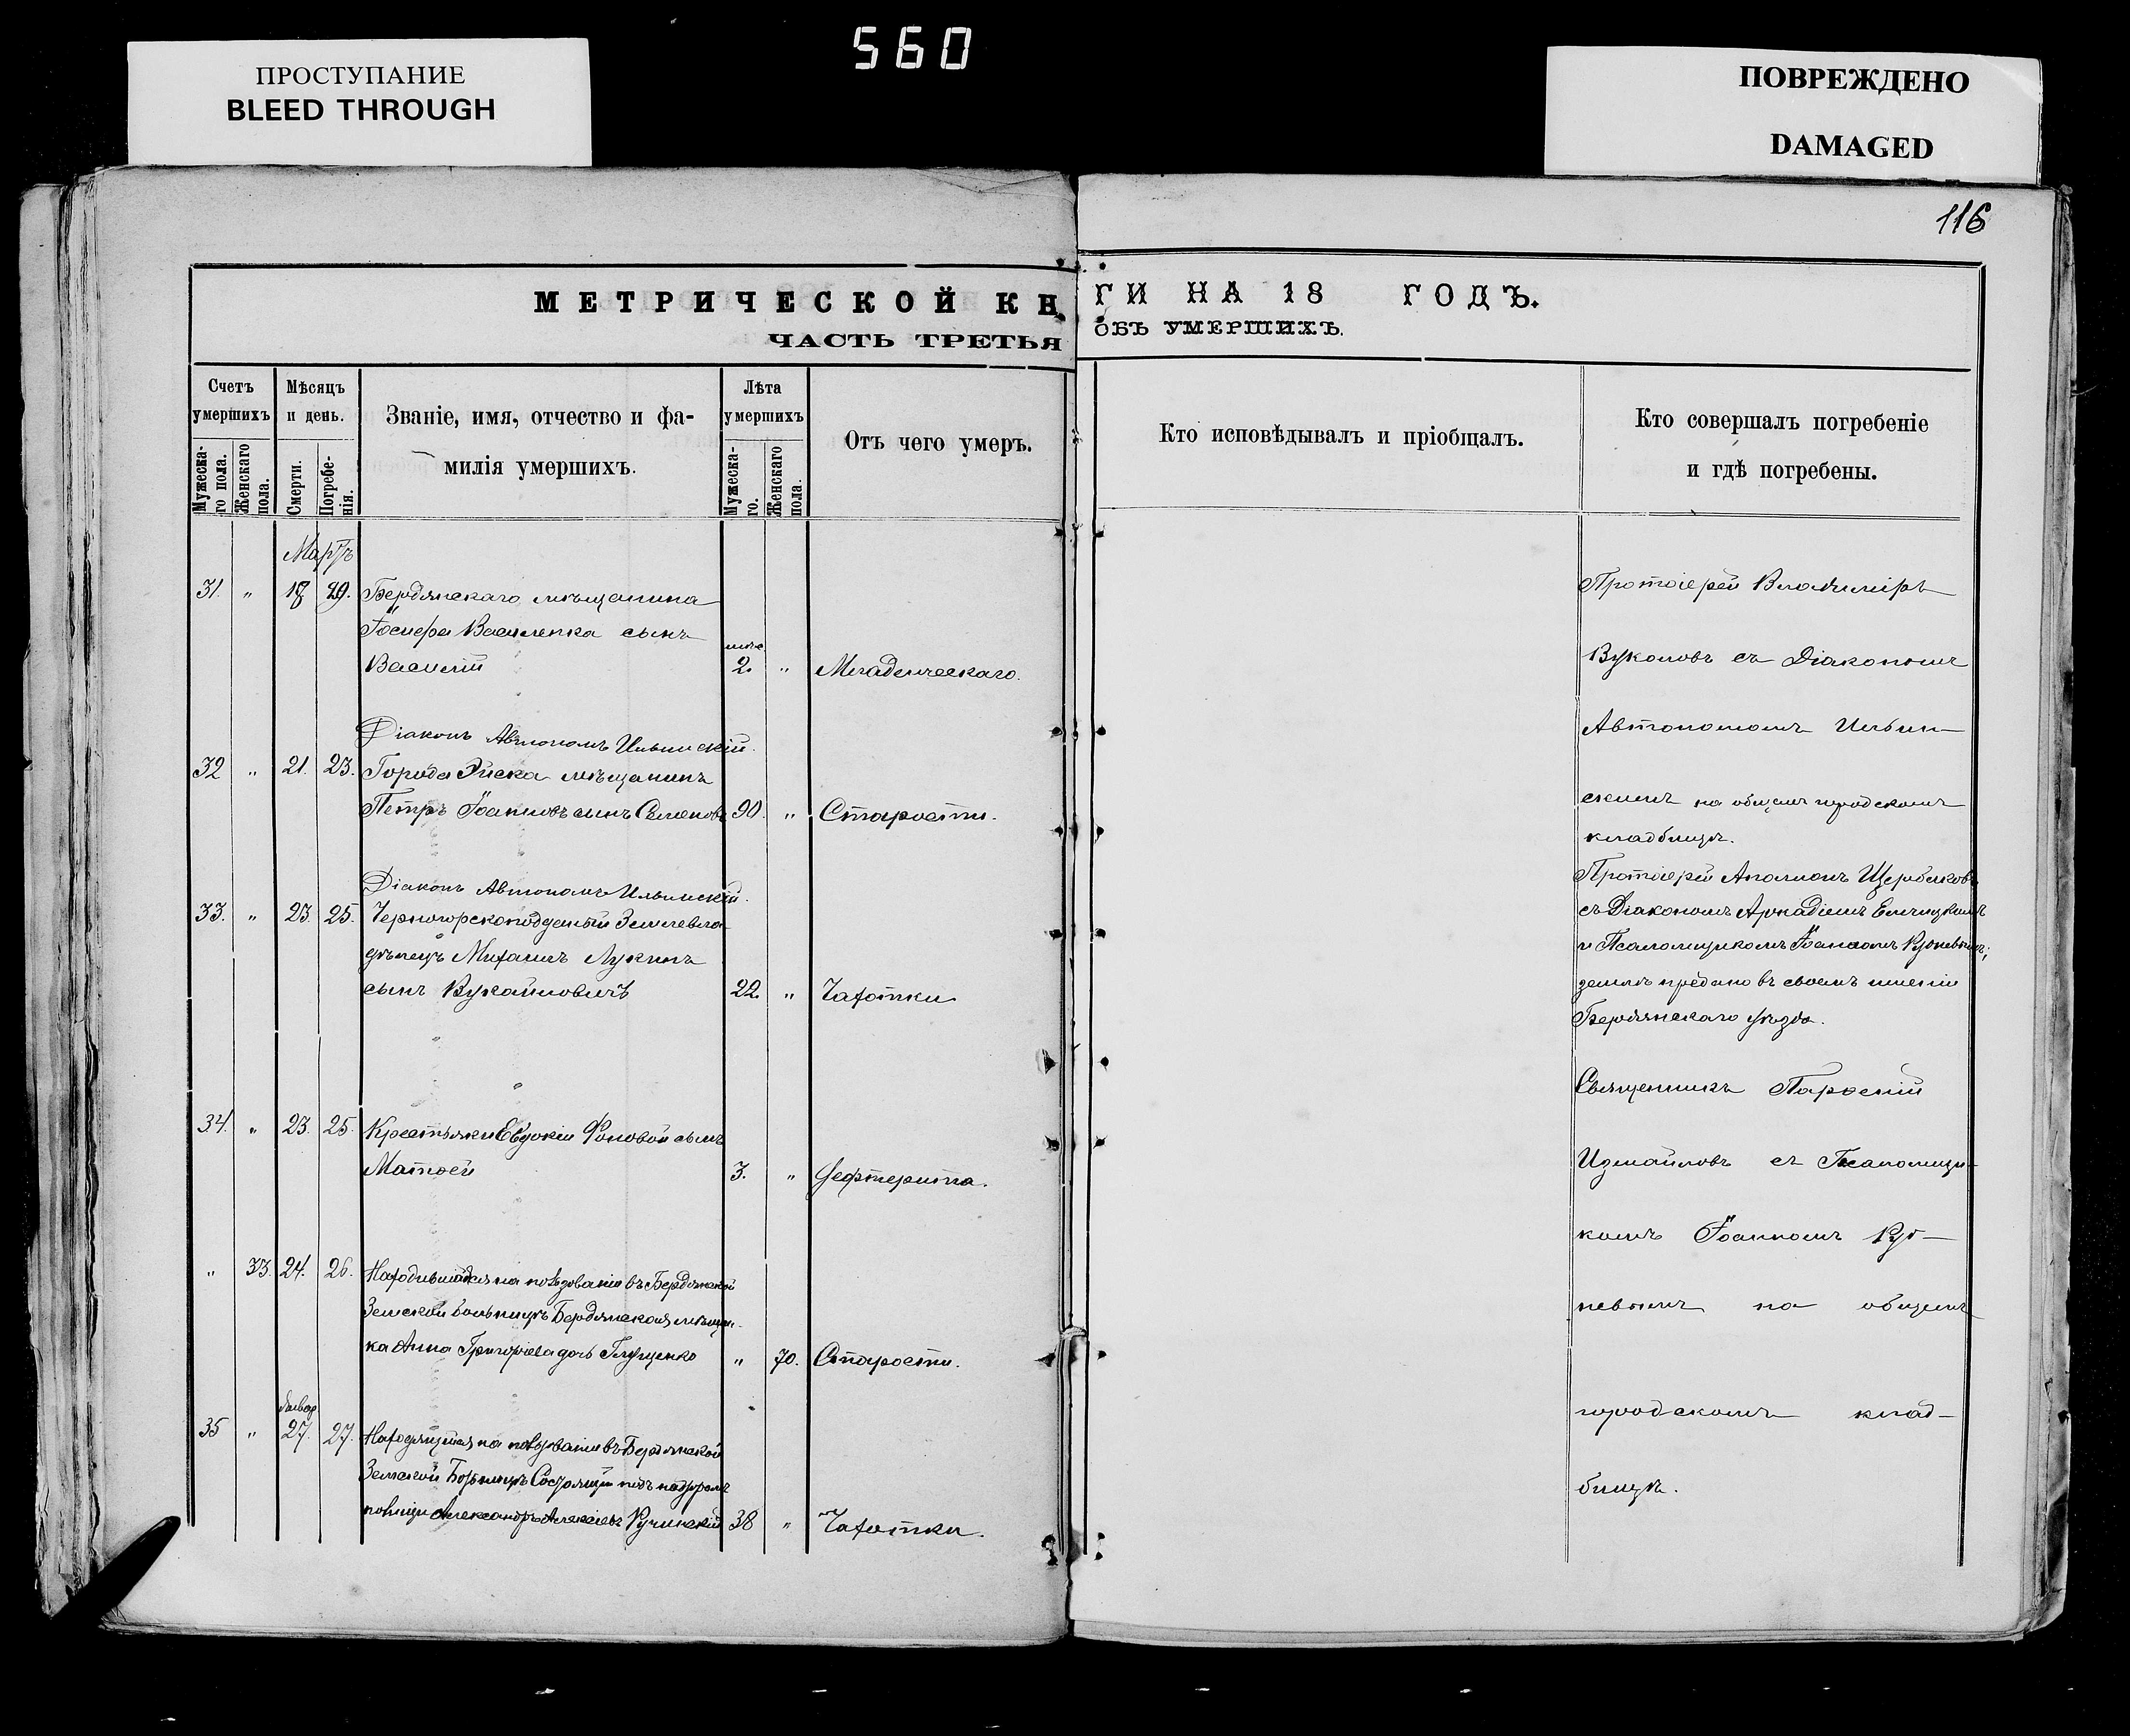 560
ПРОСТУПАНИЕ
BLEED THROUGH
ПОВРЕЖДЕНО
DAMAGED
116
МЕТРИЧЕСКОЙ КНИГИ НА 18 ГОДЪ.
ЧАСТЬ ТРЕТЬЯ ОБЪ УМЕРШИХЪ.
Счетъ умершихъ
Мужеска-го пола.
Женскаго пола.
Мѣсяцъ и день.
Смерти.
Погребе-нія.
Званіе, имя, отчество и фа-
милія умершихъ.
Лѣта умершихъ
Мужеска-го.
Женскаго пола.
Отъ чего умеръ.
Кто исповѣдывалъ и пріобщалъ.
Кто совершалъ погребеніе
и гдѣ погребены.
Мартъ
31. " 18 29. Бердянскаго мѣщанина
Іосифа Василенка сынъ
Василій 2. " Младенческаго.
Діаконъ Автономъ Ильинскій.
32 " 21. 23. Города Эйска мѣщанинъ
Петръ Іоанновъ сынъ Семеновъ 90. " Старости.
Діаконъ Автономъ Ильинскій.
33. " 23. 25. Черногорскоподданый Землевла-
дѣлецъ Михаилъ Лукинъ
сынъ Вукаиловичъ 22. " Чахотки
34. " 23. 25. Крестьянки Евдокіи Фоновой сынъ
Матѳей 3. " Дефтерита.
" 33. 24. 26. Находившаяся на пользованіи въ Бердянской
Земской больницѣ Бердянская мѣщан-
ка Анна Григоріева дочь Глущенко " 70. Старости.
35 " 27. 27. Находящійся на пользованіи въ Бердянской
Земской Больницѣ Состоящій подъ надзоромъ
полиціи Александръ Алексіевъ 38 " Чахотки.
Протоіерей Владиміръ
Вуколовъ съ Діакономъ
Автономомъ Ильин-
скимъ на общемъ городскомъ
кладбищѣ.
Протоіерей Аполлонъ Щербаковъ
съ Діакономъ Аркадіемъ
и Псаломщикомъ Іоанномъ
землѣ предано въ своемъ имѣніи
Бердянскаго уѣзда.
Священникъ Парѳеній
Измайловъ съ Псаломщи-
комъ Іоанномъ Руд-
невымъ на общемъ
городскомъ клад-
бищѣ.